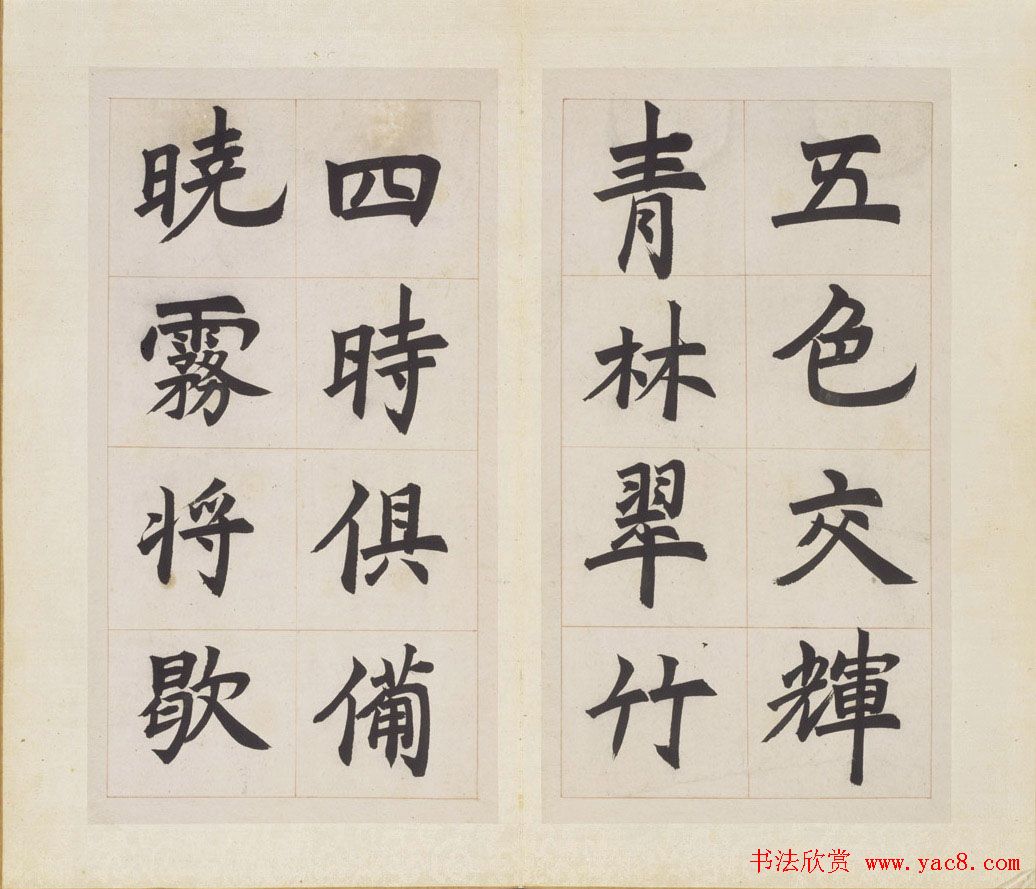 五色交輝
青林翠竹
四時俱備
曉霧将歇
书法欣赏 www.yac8.com